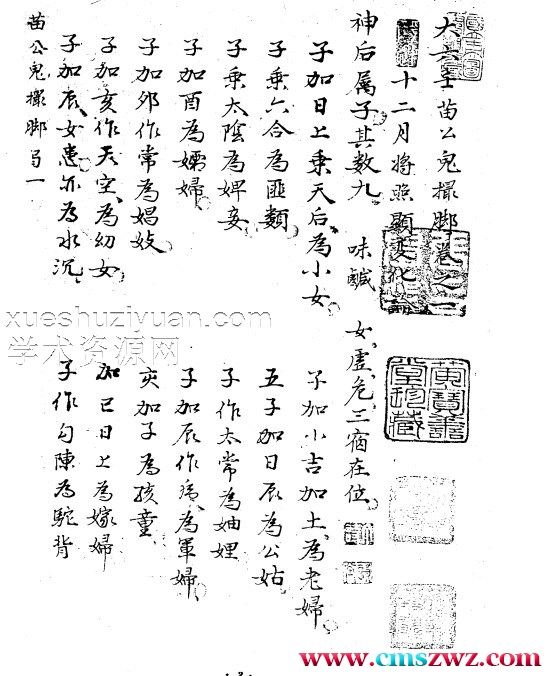 大六壬苗公鬼撮脚卷之一
十二月将照顯变化論
神后属子其数九 味鹹 女虚危三宿在位
子加日上乘天后為小女 子加小吉加土為老婦
子乘六合為匪類 五子加日辰為公姑
子乘太陰為婢妾 子作太常為妯娌
子加酉為孀婦 子加辰作 為軍婦
子加卯作常為娼妓 亥加子為孩童
子加亥作天空為幼女 加巳日上為嫁婦
子加辰女患亦為水沉 子作勾陳為駝背
苗公鬼撮脚 一
黄寶善堂珍藏
xueshuziyuan.com
学术资源网
www.cmszwz.com